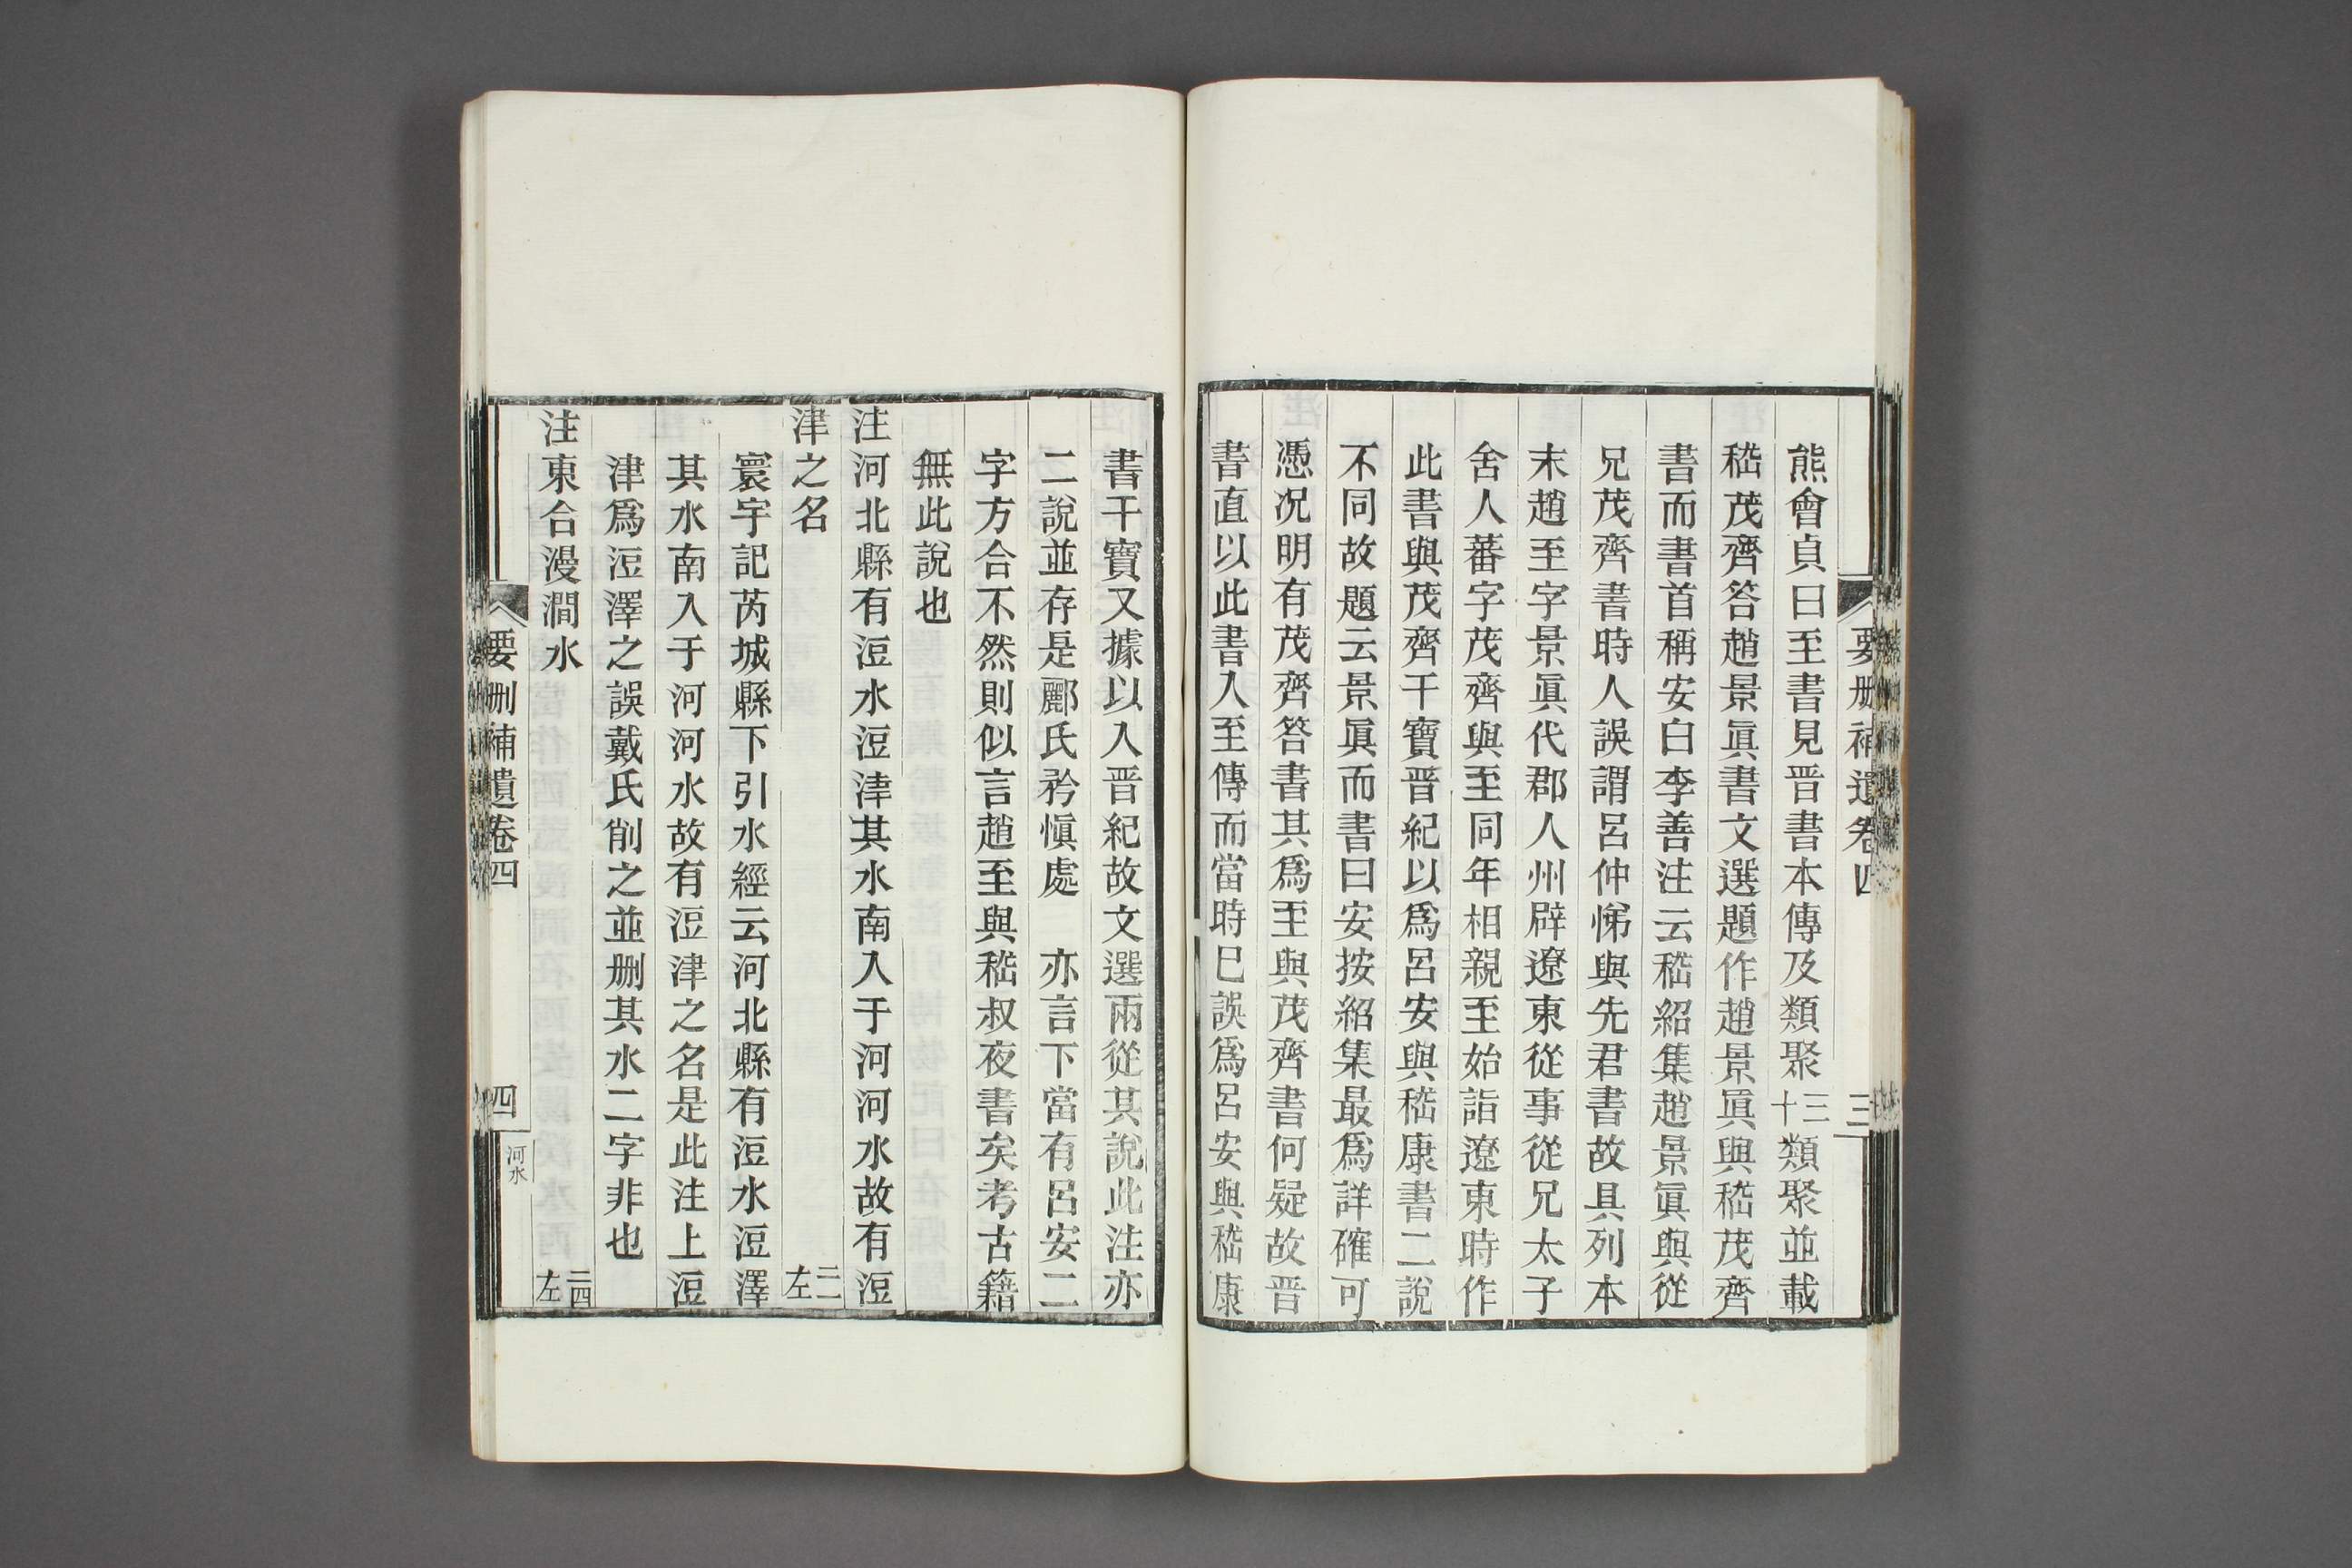 要删補遺卷四
三
熊會貞曰至書見晋書本傳及類聚三十類聚並載
嵇茂齊答趙景眞書文選題作趙景眞與嵇茂齊
書而書首稱安白李善注云嵇紹集趙景眞與從
兄茂齊書時人誤謂呂仲悌與先君書故具列本
末趙至字景眞代郡人州辟遼東從事從兄太子
舍人蕃字茂齊與至同年相親至始詣遼東時作
此書與茂齊干寶晋紀以爲呂安與嵇康書二說
不同故題云景眞而書曰安按紹集最爲詳確可
憑况明有茂齊答書其爲至與茂齊書何疑故晋
書直以此書入至傳而當時已誤爲呂安與嵇康
書干寶又據以入晋紀故文選兩從其說此注亦
二說並存是酈氏矜愼處　亦言下當有呂安二
字方合不然則似言趙至與嵇叔夜書矣考古籍
無此說也
注河北縣有洰水洰津其水南入于河河水故有洰
津之名　二二左
寰宇記芮城縣下引水經云河北縣有洰水洰澤
其水南入于河河水故有洰津之名是此注上洰
津爲洰澤之誤戴氏削之並删其水二字非也
注東合漫澗水　二四左
要删補遺卷四
四
河水